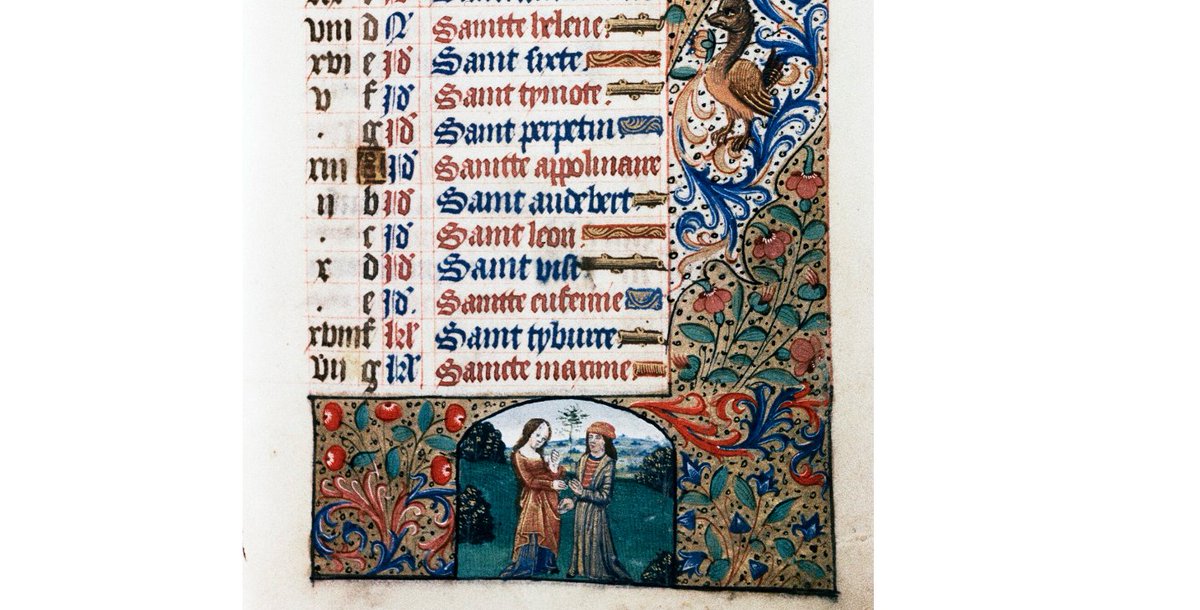 viii d N Saintte helene
xvi e Jd Saint sixte
v f Jd Saint tymote
. g Jd Saint perpetin
xiii A Jd Saintte appolinaire
ii b Jd Saint audebert
. c Jd Saint leon
x d Jd Saint vist
. e Jd. Saintte eufenne
xviii f kl Saint tyburce
vii g kl Saincte maxime